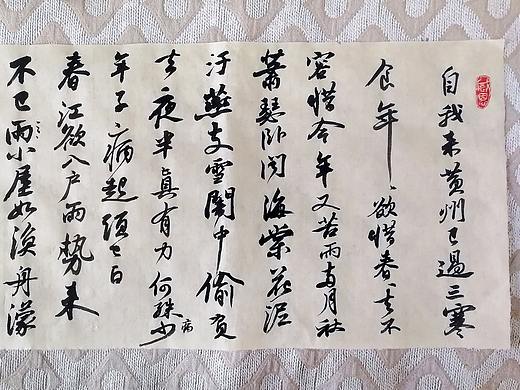 自我来黄州已過三寒
食年々欲惜春々去不
容惜今年又苦雨兩月秋
蕭瑟卧聞海棠花泥
汙燕支雪闇中偷負
去夜半真有力何殊少病
年子病起須已白
春江欲入户雨勢来
不已雨小屋如漁舟濛